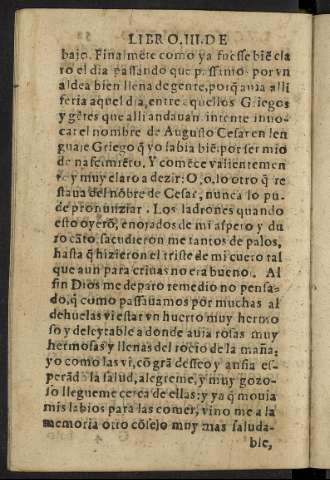 LIBRO.III.DE
bajo. Finalmēte como ya fuesse biē cla
ro el dia passando que passimo‹ por vn
aldea bien llena de gente, porq̄ auia alli
feria aquel dia, entre aquellos Griegos
y gētes que alli andauan intente inuo-
car el nombre de Augusto Cesar en len
guaje Griego q̄ yo sabia biē: por ser mio
de nascimiēto. Y comēce valientemen
te y muy claro a dezir: O, o, lo otro q̄ re
staua del nōbre de Cesar, nunca lo pu-
de pronunziar. Los ladrones quando
esto oyerō, enojados de mi aspero y du
ro cāto, sacudieron me tantos de palos,
hasta q̄ hizieron el triste de mi cuero tal
que aun para criuas no era bueno. Al
fin Dios me deparo remedio no pensa-
do, q̄ como passauamos por muchas al
dehuelas vi estar vn huerto muy hermo
so y deleytable a donde auia rosas muy
hermosas y llenas del rocio de la maña;
yo como las vi, cō grā desseo y ansia es-
perād la salud, alegreme, y muy gozo-
so llegueme cerca de ellas: y ya q̄ mouia
mis labios para las comer, vino me a la
memoria otro cōsejo muy mas saluda-
ble,